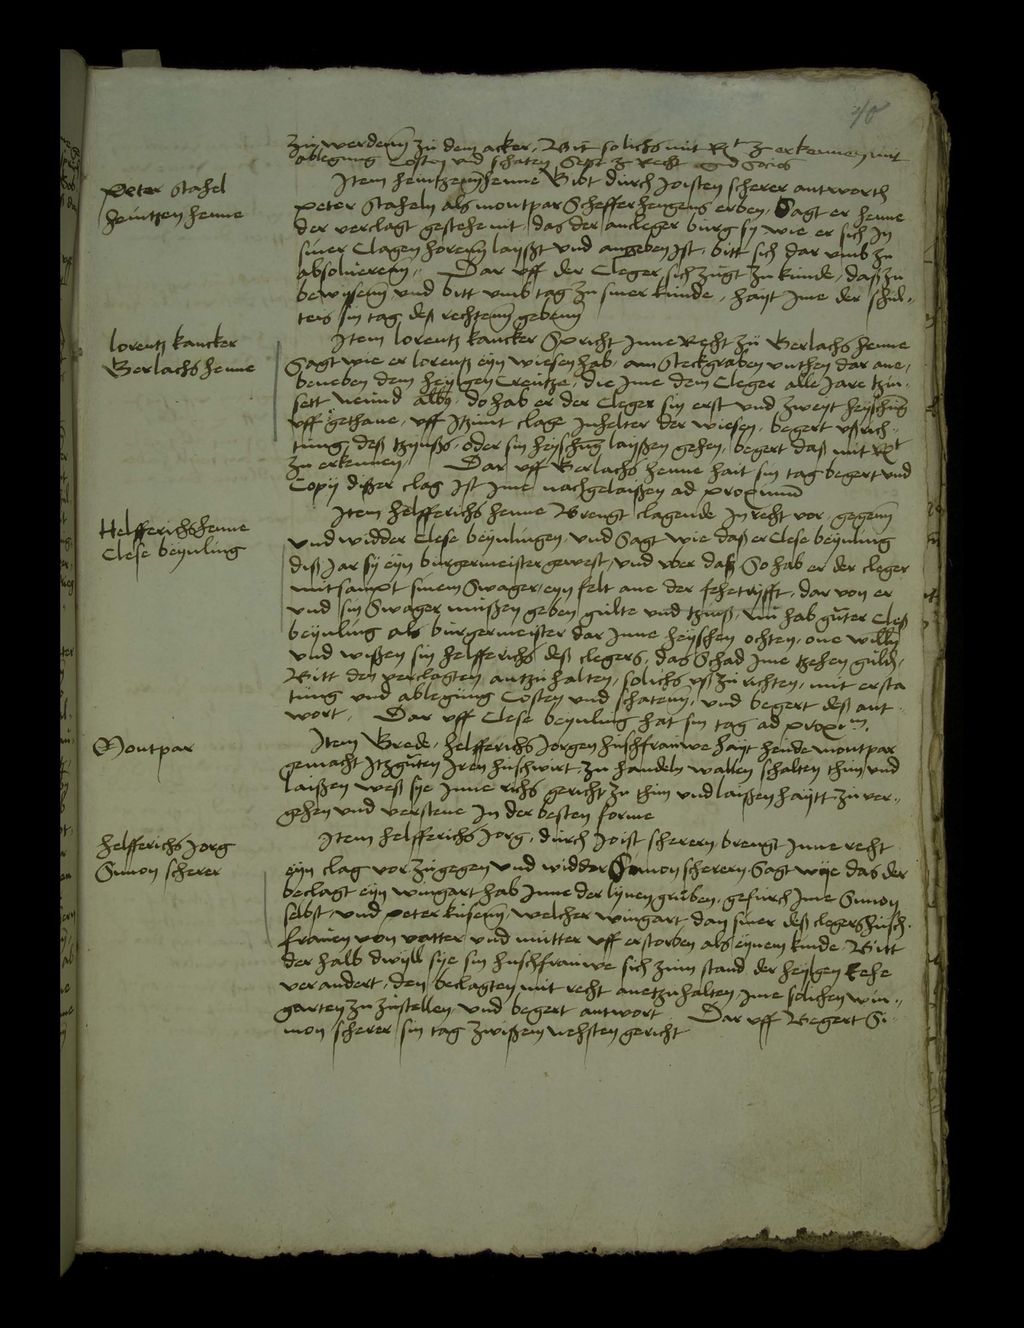 40
zu werdenn zu dem acker, Bit solichs mit Rt zu erkennen mit
ablegung Costen und schaten Setze zu Recht
Peter Stahel
Heintzen Henne
Item Heintzenn Henne Bit durch Joisten scherer antworth
Peter Staheln als montpar Schefferhengens erben, Sagt er Henne
der verclagt gestehe nit, das der ancleger burg sy wie er sich In
siner Clagen horenn laysst und angeben ist, bitt sich dar umb zu
absoluierenn, Dar uff der Cleger sich zugt zu kunde, dass zu
bewysenn und bitt umb tag zu siner kunde, hayt Ime der schul-
teis sin tag dess rechtenn gebenn
Lorentz Kancker
Berlachs Henne
Item Lorentz Kancker Spricht Inne Recht zu Berlachs Henne
Sagt wie er Lorentz eyn wiesen hab, am Steckgraben unthen dar ane,
beneben dem heylgen Creutze, die Ime dem Cleger alle Jare tzin-
sett neund alb, do hab er der Cleger sin erst und zweyt heyschung
uff gethane, uff Itzunt clage Inhelter der wiesen, begert ussrich-
tung dess tzynsses, oder sin heyschung layssen gehen, begert dass mit Rt
zu erkennen, Dar uff Berlachs Henne hait sin tag begert und
Copy disser clag Ist Ime nachgelaissen ad proximum
Helfferichs Henne
Clese Beynling
Item Helfferichs Henne Brengt clagende In recht vor, gegenn
und widder Clese beynlingen, und Sagt wie dass er Clese beynling
diss Jar sy eyn burgermeister gewest, und uber dass So hab er der cleger
mitsampt sinem Swager, eyn felt ane der fehetrifft, dar von er
und sin Swager mussen geben gulte und tzinss, nu hab guter Cless
beynling als burgermeister dar Inne heyschen ochten, one willn
und wissen sin Helfferichs dess clegers, das Schad Ime tzehen guld,
Bitt den verclagten antzuhalten, solichs uss zu richten, mit ersta
tung und ablegung Costen und schatenn, und begert dess ant-
wort, Dar uff Clese beynling hat sin tag ad proxim.
Montpar
Item Brede, Helfferichs Jorgen hussfrauwe hayt heude montpar
gemacht Itzguten Iren husswirt, zu handeln walten schalten thun und
laissen wess sye Inne richs gericht zu thun und laissen haytt zu ver-
gehen und verstene In der besten forme
Helfferichs Jorg
Simon Scherer
Item Helfferichs Jorg, durch Joist scherern, brengt Inne recht
eyn clag vor zugegen und widder Simon scherern, Sagt wye das der
beclagt eyn wingart hab Inne der lynengruben, gefurch Ime Simon
selbst, und Peter Kusenn, welcher wingart dan siner dess clegers huss-
frauen von vatter und mutter uff erstorben als eynem kinde, Bitt
der halb dwyll sye sin hussfrauwe sich zum stand der heylgen Eehe
verandert, den beclagten mit recht anetzuhalten, Ime solichen win-
garten zu zustellen, und begert antwort, Dar uff Begert Si-
mon Scherer sin tag zwissem nehsten gericht